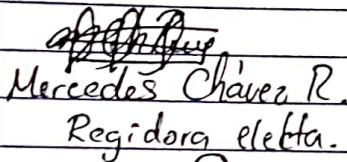 Mercedes Chávez R.
Regidora electa.